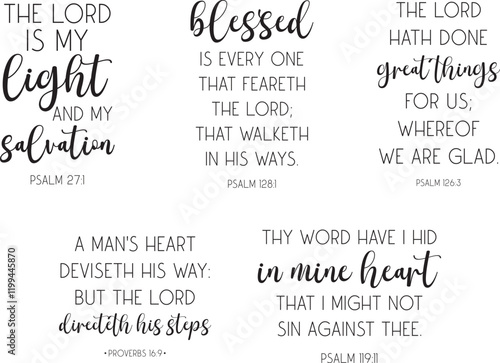 THE LORD
IS MY
light
AND MY
salvation
PSALM 27:1
blessed
IS EVERY ONE
THAT FEARETH
THE LORD;
THAT WALKETH
IN HIS WAYS.
PSALM 128:1
THE LORD
HATH DONE
great things
FOR US;
WHEREOF
WE ARE GLAD.
PSALM 126:3
A MAN'S HEART
DEVISETH HIS WAY:
BUT THE LORD
directeth his steps
• PROVERBS 16:9 •
THY WORD HAVE I HID
in mine heart
THAT I MIGHT NOT
SIN AGAINST THEE.
PSALM 119:11
Adobe Stock | #1199445870